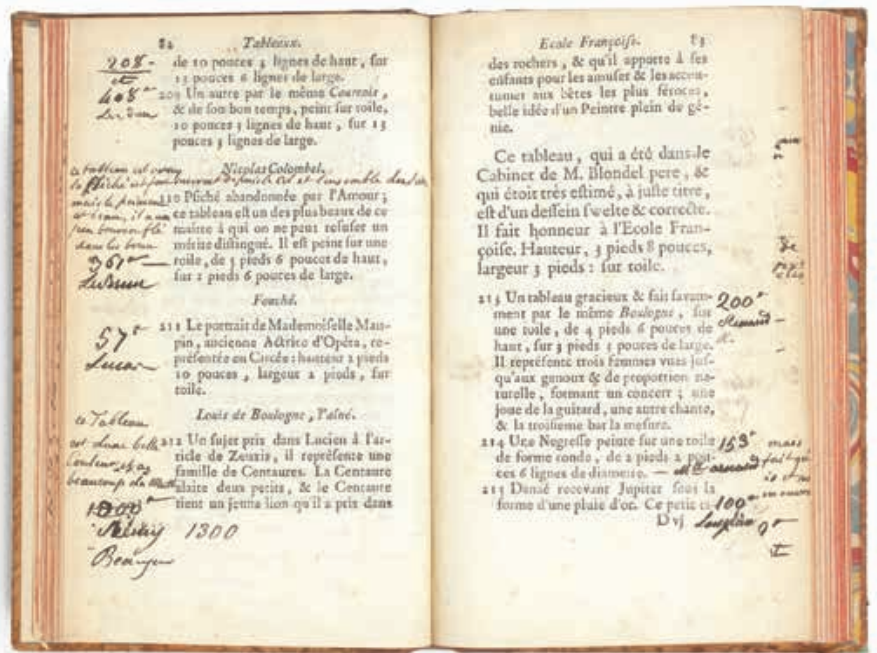 82 Tableaux.
208-
de 10 pouces 3 lignes de haut, sur
13 pouces 6 lignes de large.
408
209 Un autre par le même Courtois,
& de son bon temps, peint sur toile,
10 pouces 3 lignes de haut, sur 13
pouces 3 lignes de large.
Nicolas Colombel.
ce tableau est
mais le
210 Psiché abandonnée par l'Amour;
ce tableau est un des plus beaux de ce
maître à qui on ne peut refuser un
mérite distingué. Il est peint sur une
toile, de 3 pieds 6 pouces de haut,
sur 2 pieds 6 pouces de large.
361
LeBrun
Fouché.
57
211 Le portrait de Mademoiselle Mau-
pin, ancienne Actrice d'Opéra, re-
présentée en Circée: hauteur 2 pieds
10 pouces, largeur 2 pieds, sur
toile.
Louis de Boulogne, l'aîné.
ce Tableau
est d'une belle
Couleur
beaucoup
212 Un sujet pris dans Lucien à l'ar-
ticle de Zeuxis, il représente une
famille de Centaures. La Centaure
alaite deux petits, & le Centaure
tient un jeune lion qu'il a pris dans
1300
Ecole Françoise. 83
des rochers, & qu'il apporte à ses
enfants pour les amuser & les accou-
tumer aux bêtes les plus féroces,
belle idée d'un Peintre plein de gé-
nie.
Ce tableau, qui a été dans le
Cabinet de M. Blondel pere, &
qui étoit très estimé, à juste titre,
est d'un dessein svelte & correcte.
Il fait honneur à l'Ecole Fran-
çoise. Hauteur, 3 pieds 8 pouces,
largeur 3 pieds: sur toile.
213 Un tableau gracieux & fait savam-
ment par le même Boulogne, sur
une toile, de 4 pieds 6 pouces de
haut, sur 3 pieds 2 pouces de large.
Il représente trois femmes vues jus-
qu'aux genoux & de proportion na-
turelle, formant un concert; une
joue de la guitard, une autre chante,
& la troisieme bat la mesure.
200
214 Une Negresse peinte sur une toile
de forme ronde, de 2 pieds 2 pou-
ces 6 lignes de diametre.
153 mais
215 Danaé recevant Jupiter sous la
forme d'une pluie d'or. Ce petit ta-
100
D vj